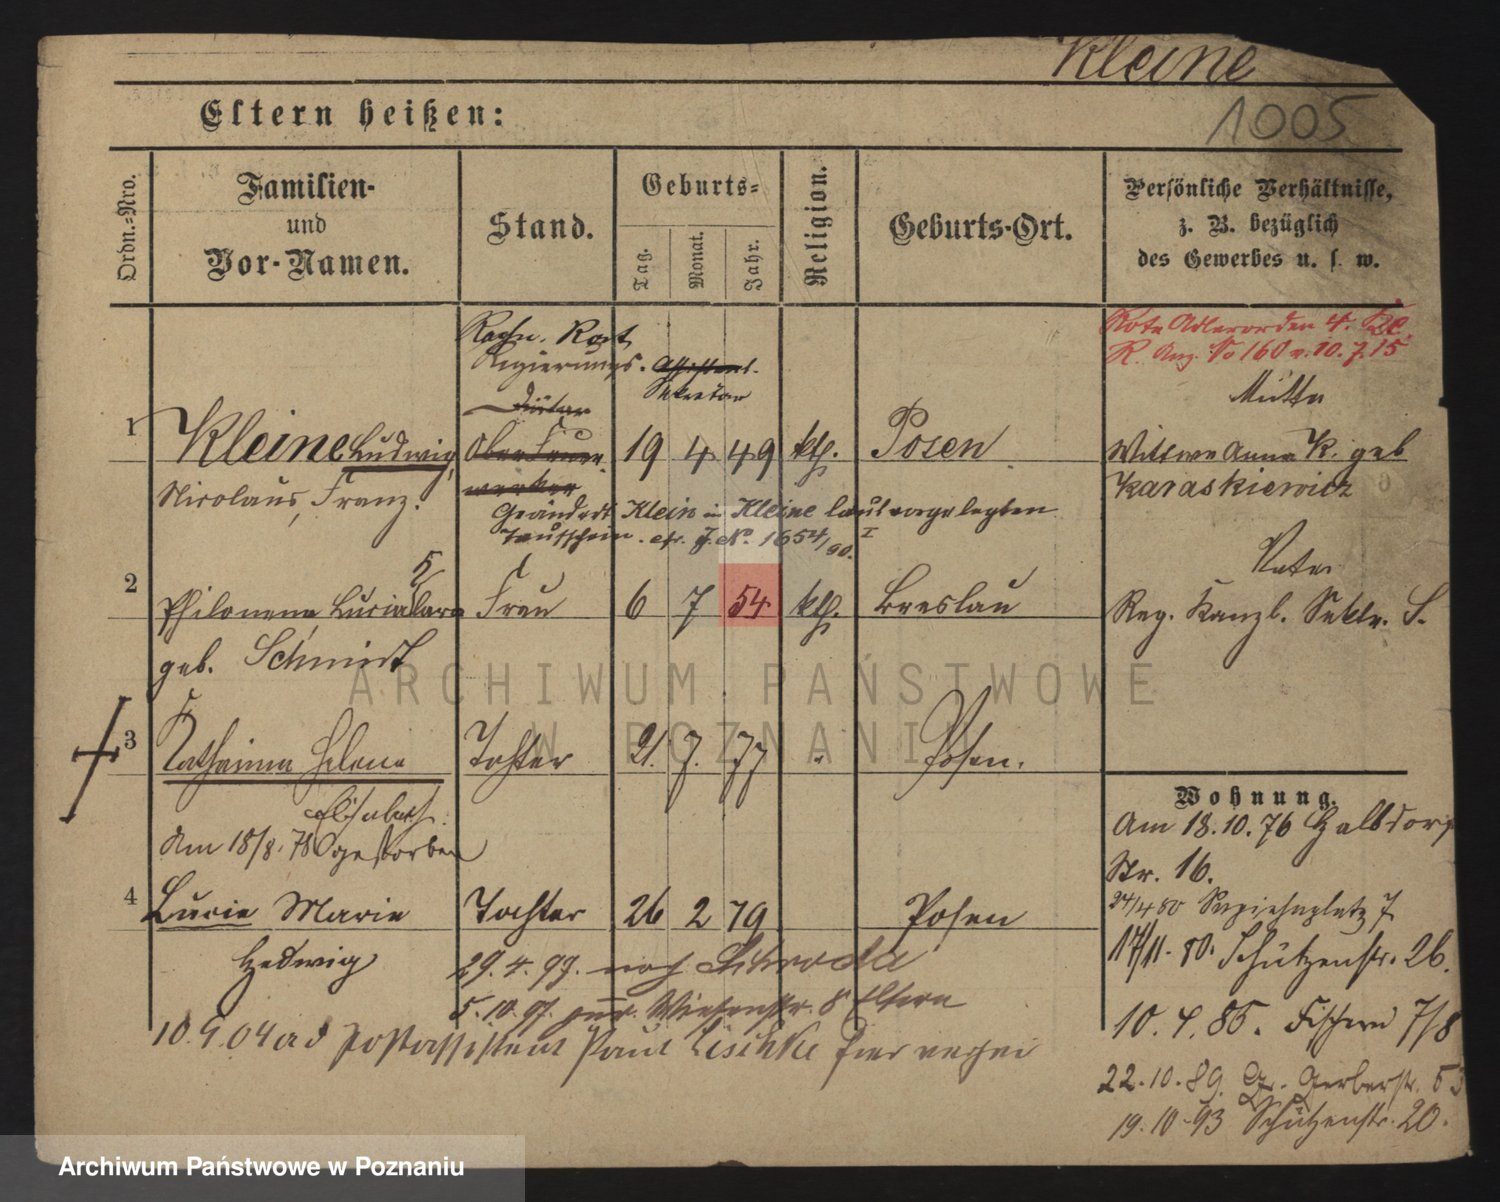 Kleine
1005
Eltern heißen:
Ordn.-Nro.
Familien-
und
Vor-Namen.
Stand.
Geburts-
Tag.
Monat.
Jahr.
Religion.
Geburts-Ort.
Persönliche Verhältnisse,
z. B. bezüglich
des Gewerbes u. s. w.
Rote Adlerorden 4.
R. Anz. No 160 v. 10. 7. 15
Regierungs-
Sekretär
Diätar
Mutter
1 Kleine Ludwig, Ober Feuer- 19 4 49 kth. Posen Wittwe Anna K. geb
werker
Nicolaus, Franz. Karaskiewicz
Geändert Klein in Kleine laut vorgelegten
Taufschein. cfr. J. No. 1654/90. I
Vater
2 Philomena Lucia Clara Frau 6 7 54 kth. Breslau Reg. Kanzl. Sektr. S.
geb. Schmidt
3 Katharina Helene Tochter 21. 7. 77 Posen.
Elisabeth.
Am 18/8. 78 gestorben
Wohnung.
Am 18.10.76 Halbdorf
Str. 16.
4 Lucie Marie Tochter 26 2 79 Posen
Hedwig
24/4 80 Sapiehaplatz 7
17/11. 80. Schützenstr. 26.
29. 4. 97. nach Schroda
5. 10. 97. zur. Wiesenstr. 8 Eltern
10.9.04 ad Postassistent Paul hier
10. 4. 85. Fischerei 7/8
22.10.89. Gr. Gerberstr. 53
19.10.93 Schützenstr. 20.
ARCHIWUM PAŃSTWOWE
W POZNANIU
Archiwum Państwowe w Poznaniu